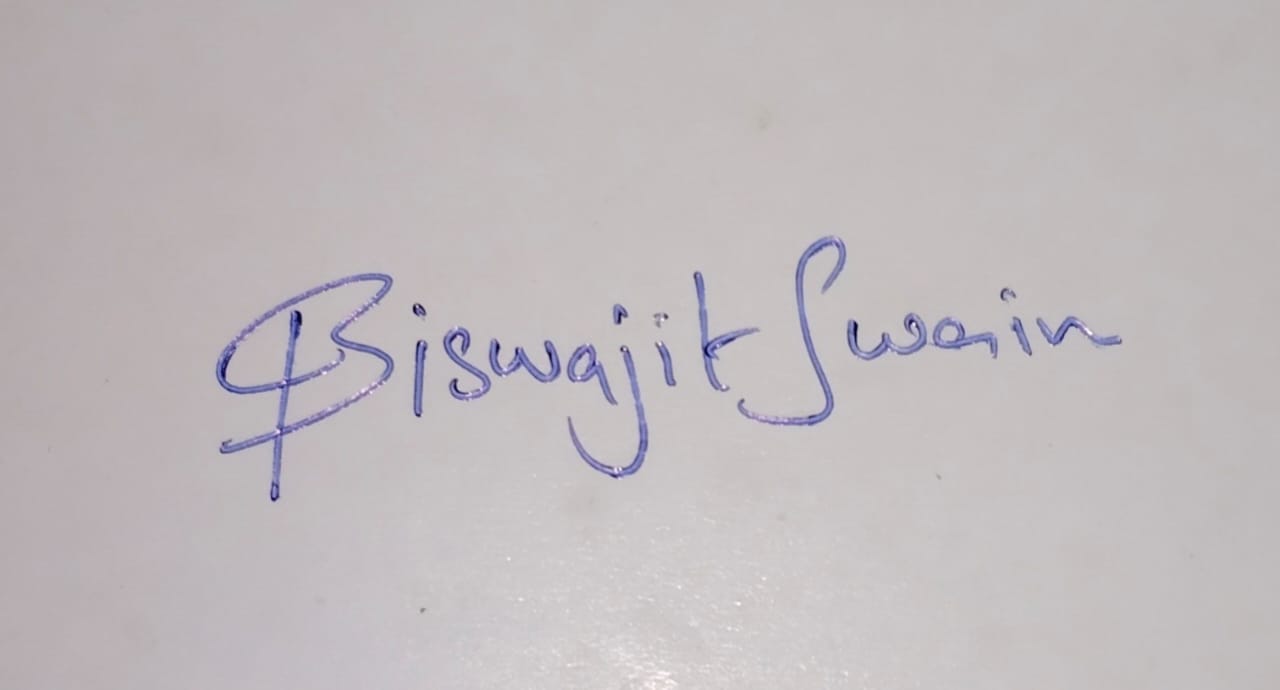 Biswajit Swain